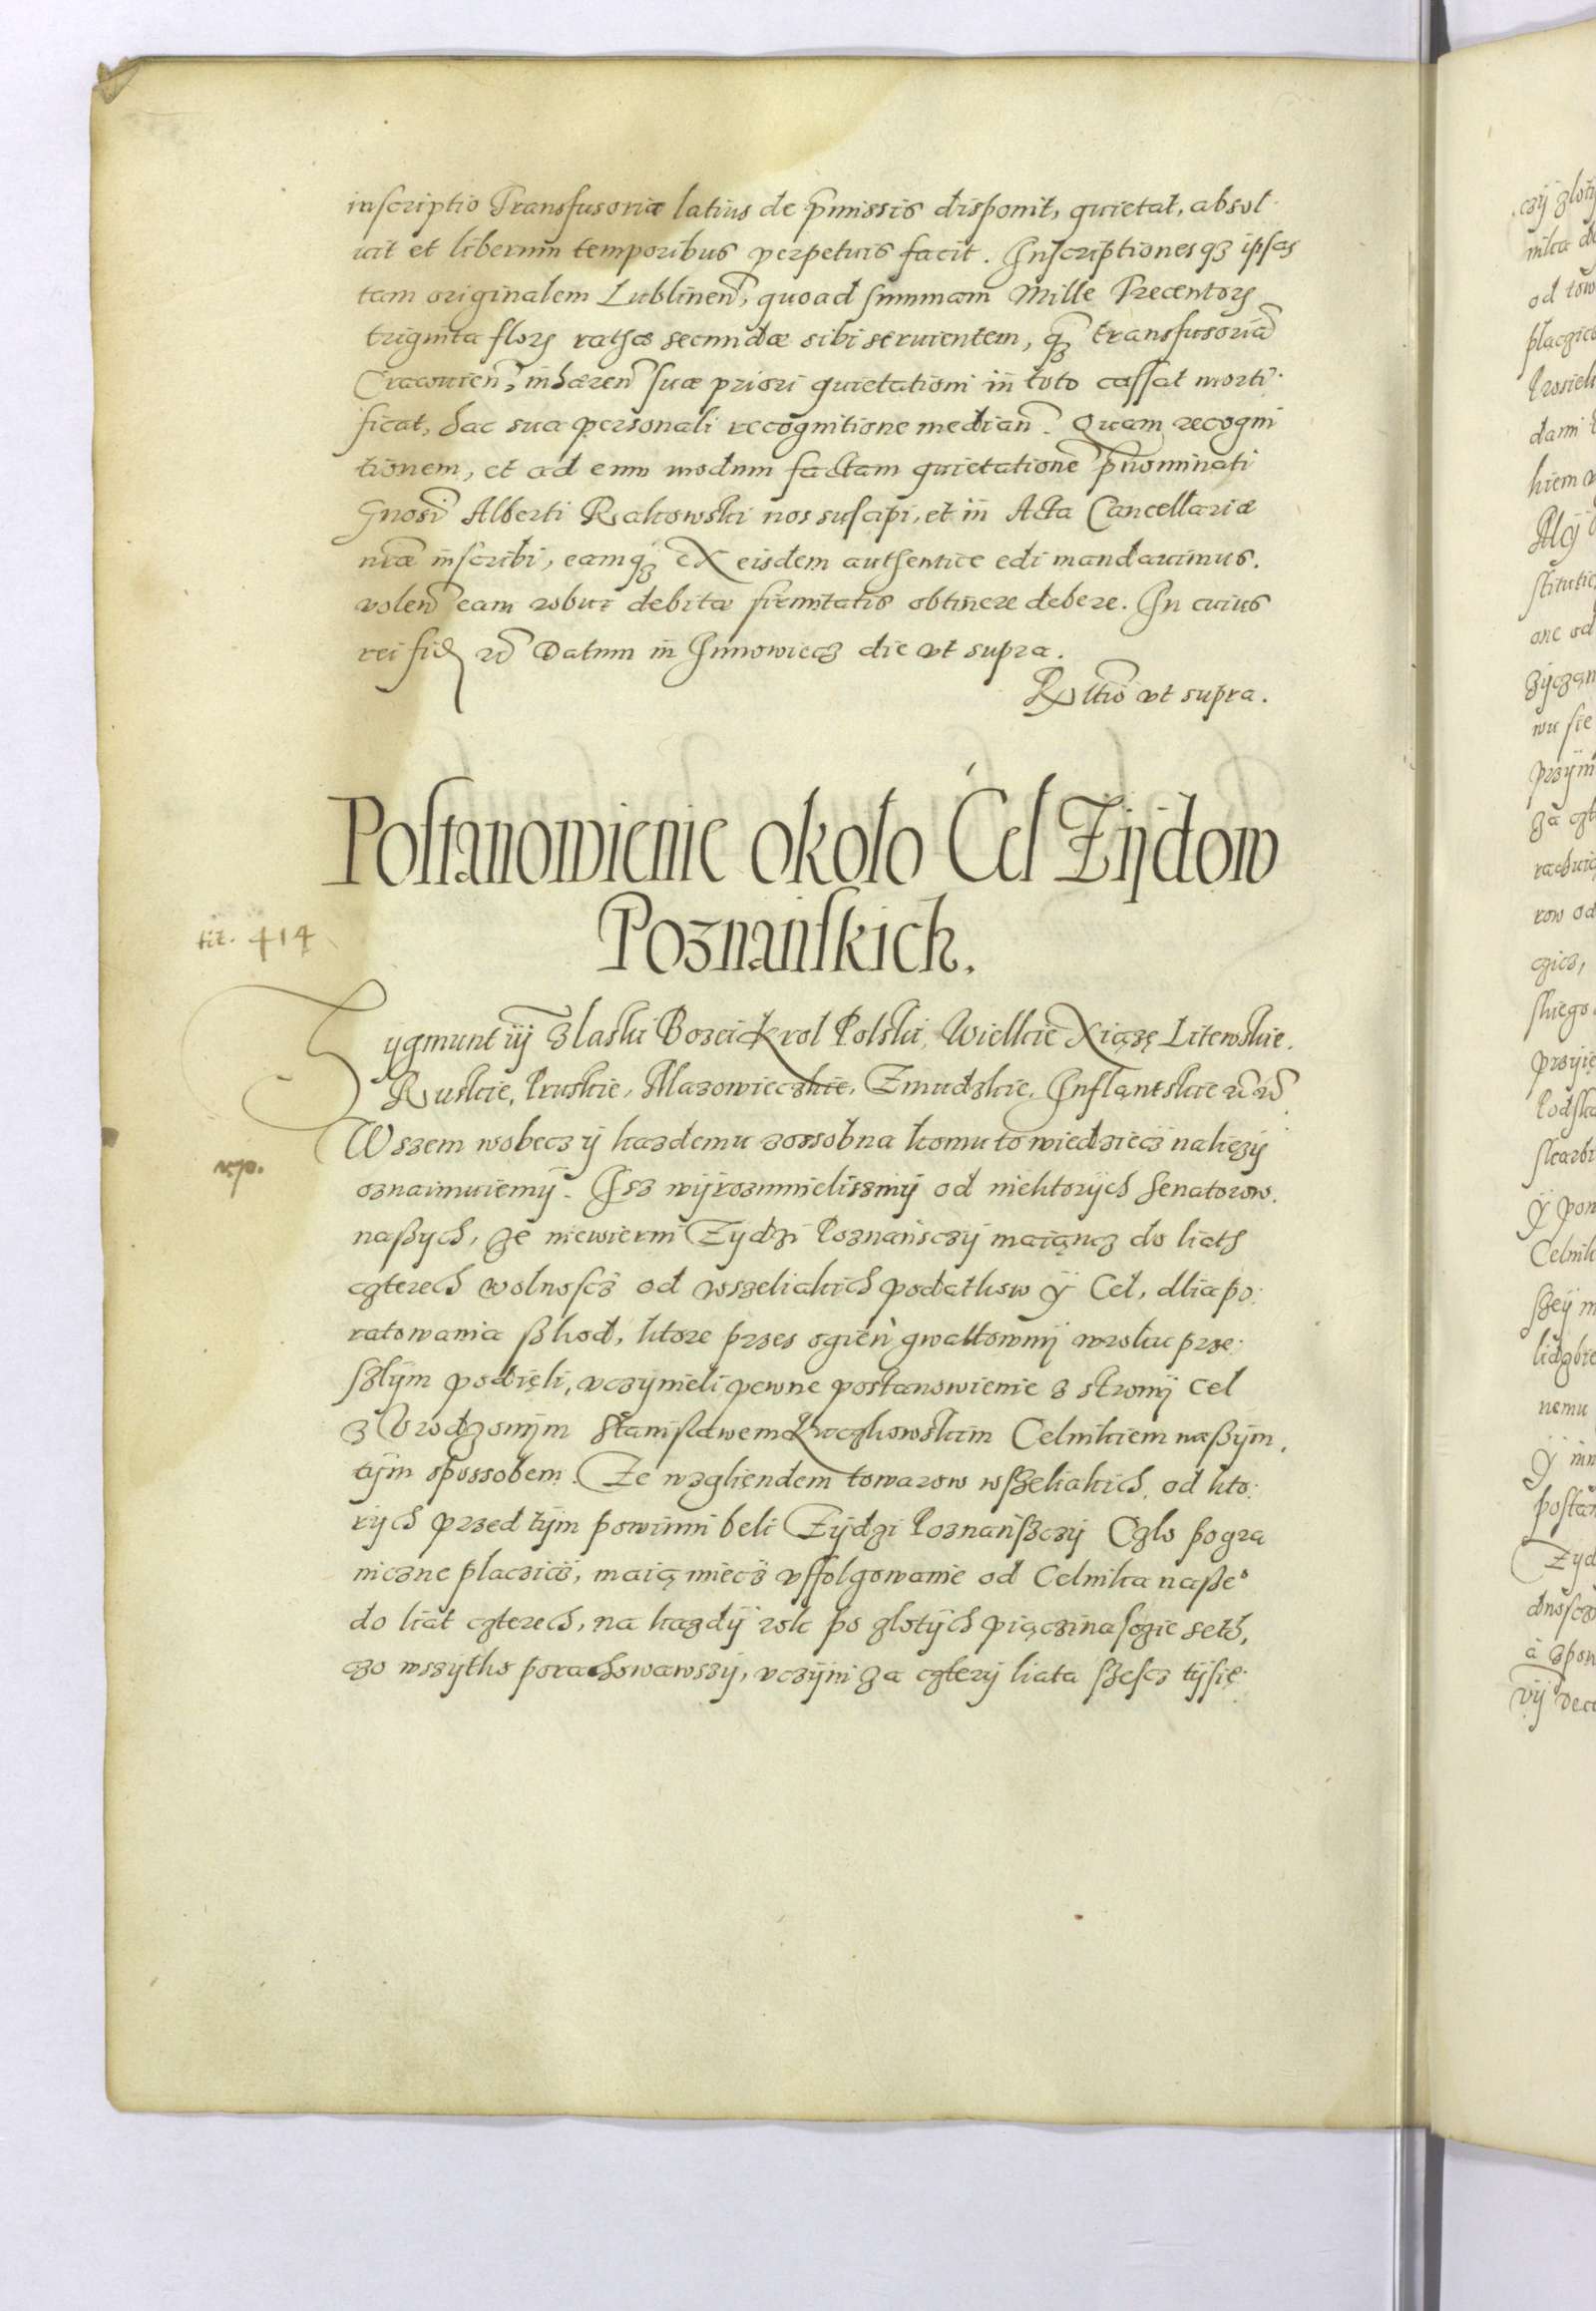 inscriptio Transfusoriæ latius de p̃missis disponit, quietat, absol-
uit et liberum temporibus perpetuis facit. Inscriptionesqʒ ipsas
tam originalem Lublineñ, quoad summam Mille Trecentorʒ
triginta florʒ rathæ secundæ sibi seruientem, q̃ʒ transfusoriã
Cracouieñ, inhæreñ suæ priori quietationi in toto cassat morti-
ficat, hac sua personali recognitione mediañ. Quam recogni
tionem, et ad eum modum factam quietationẽ p̃nominati
Gnosi Alberti Rakowski nos suscipi, et in Acta Cancellariæ
nr̃æ inscribi, eamqʒ ex eisdem authentice edi mandauimus.
voleñ eam robur debitæ firmitatis obtinere debere. In cuius
rei fid Datum in Junowiecz die vt supra.
Rltio vt supra.
Postanowienie około Ceł Zijdow
Poznańskich.
tit. 414
Zygmunt iij z laski Bozei Krol Polski, Wielkie Xiązę Litewskie.
Ruskie, Pruskie, Mazowieczkie, Zmudzkie, Inflantskie
Wszem wobecz ij kazdemu zossobna komu to wiedziecz nalezij
oznaimuiemij. Isz wijrozumielismij od niektorijch Senatorow.
naßych, ze niewierni Zydzi Poznansczij maiącz do liath
czterech wolnoscz od wszeliakich podatkow ij Ceł, dlia po-
ratowania ßkod, ktore przes ogien gwałtownij w roku prze-
szlym podięli, vczynieli pewne postanowienie z stronij ceł
z Vrodzonijm Stanisławem Celnikiem naßijm,
tijm spossobem. Ze wzgliendem towarow wszeliakich, od kto-
rijch przed tijm powinni beli Zijdzi Poznańßczij Czlo pogra
niczne placzicz, maią miecz vffolgowanie od Celnika naßeº
do liat czterech, na kazdij rok po zlotijch piączinasczie seth,
czo wszytko porachowawszij, vczijni za czterij liata szescz tijsię-